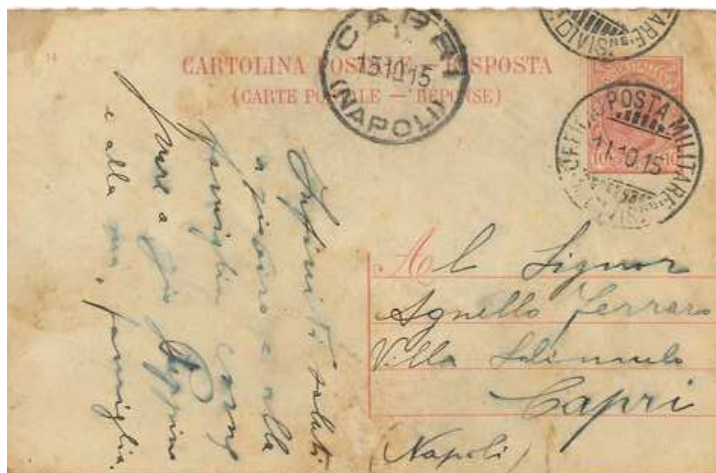 14
CARTOLINA POSTALE - RISPOSTA
(CARTE POSTALE — RÉPONSE)
CAPRI
15.10.15
(NAPOLI)
POSTA MILITARE
11.10.15
10 10
Al Signor
Agnello Ferraro
Villa
Capri
(Napoli)
Infiniti saluti
a e alla
famiglia come
pure a zio Peppino
e alla sua famiglia.